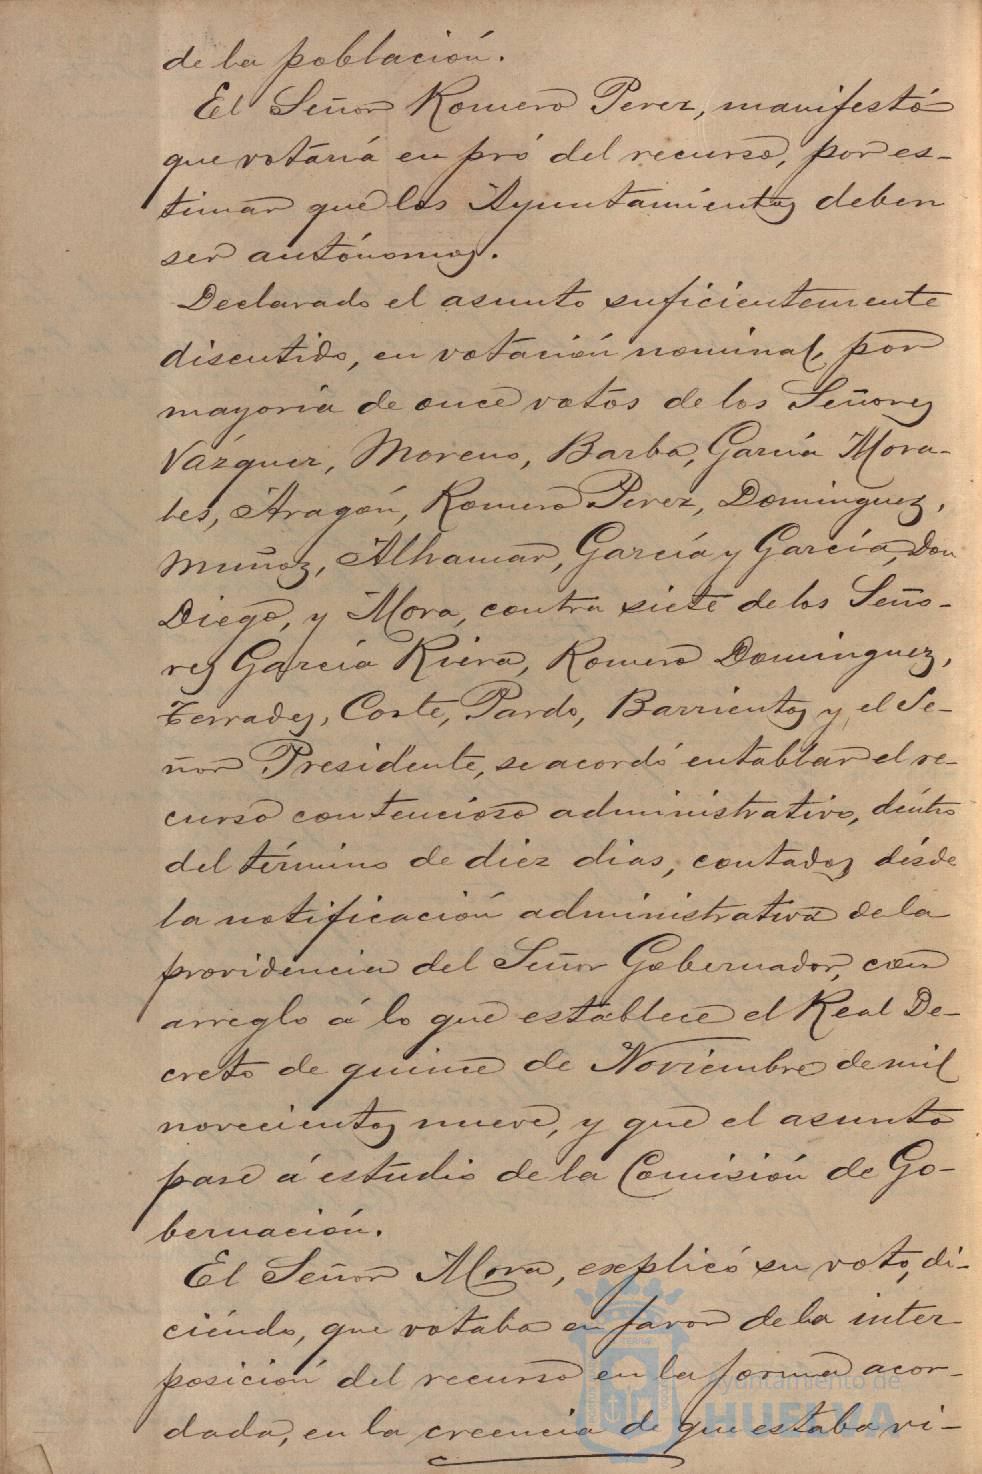 de la población.
El Señor Romero Perez, manifestó
que votaría en pró del recurso, por es-
timar que los Ayuntamientos deben
ser autónomos.
Declarado el asunto suficientemente
discutido, en votación nominal, por
mayoría de once votos de los Señores
Vázquez, Moreno, Barba, García Mora-
les, Aragón, Romero Perez, Dominguez,
Muñoz, Alhamar, García y García, Don
Diego, y Mora, contra siete de los Seño-
res García Riera, Romero Dominguez,
Terrades, Corte, Pardo, Barrientos y el Se-
ñor Presidente, se acordó entablar el re-
curso contencioso administrativo, déntro
del término de diez dias, contados désde
la notificación administrativa de la
providencia del Señor Gobernador, con
arreglo á lo que establece el Real De-
creto de quince de Noviembre de mil
novecientos nueve, y que el asunto
pase á estudio de la Comisión de Go-
bernación.
El Señor Mora, explicó su voto, di-
ciéndo, que votaba en favor de la inter-
posición del recurso en la forma acor-
dada, en la creencia de que estaba vi-
Ayuntamiento de
HUELVA